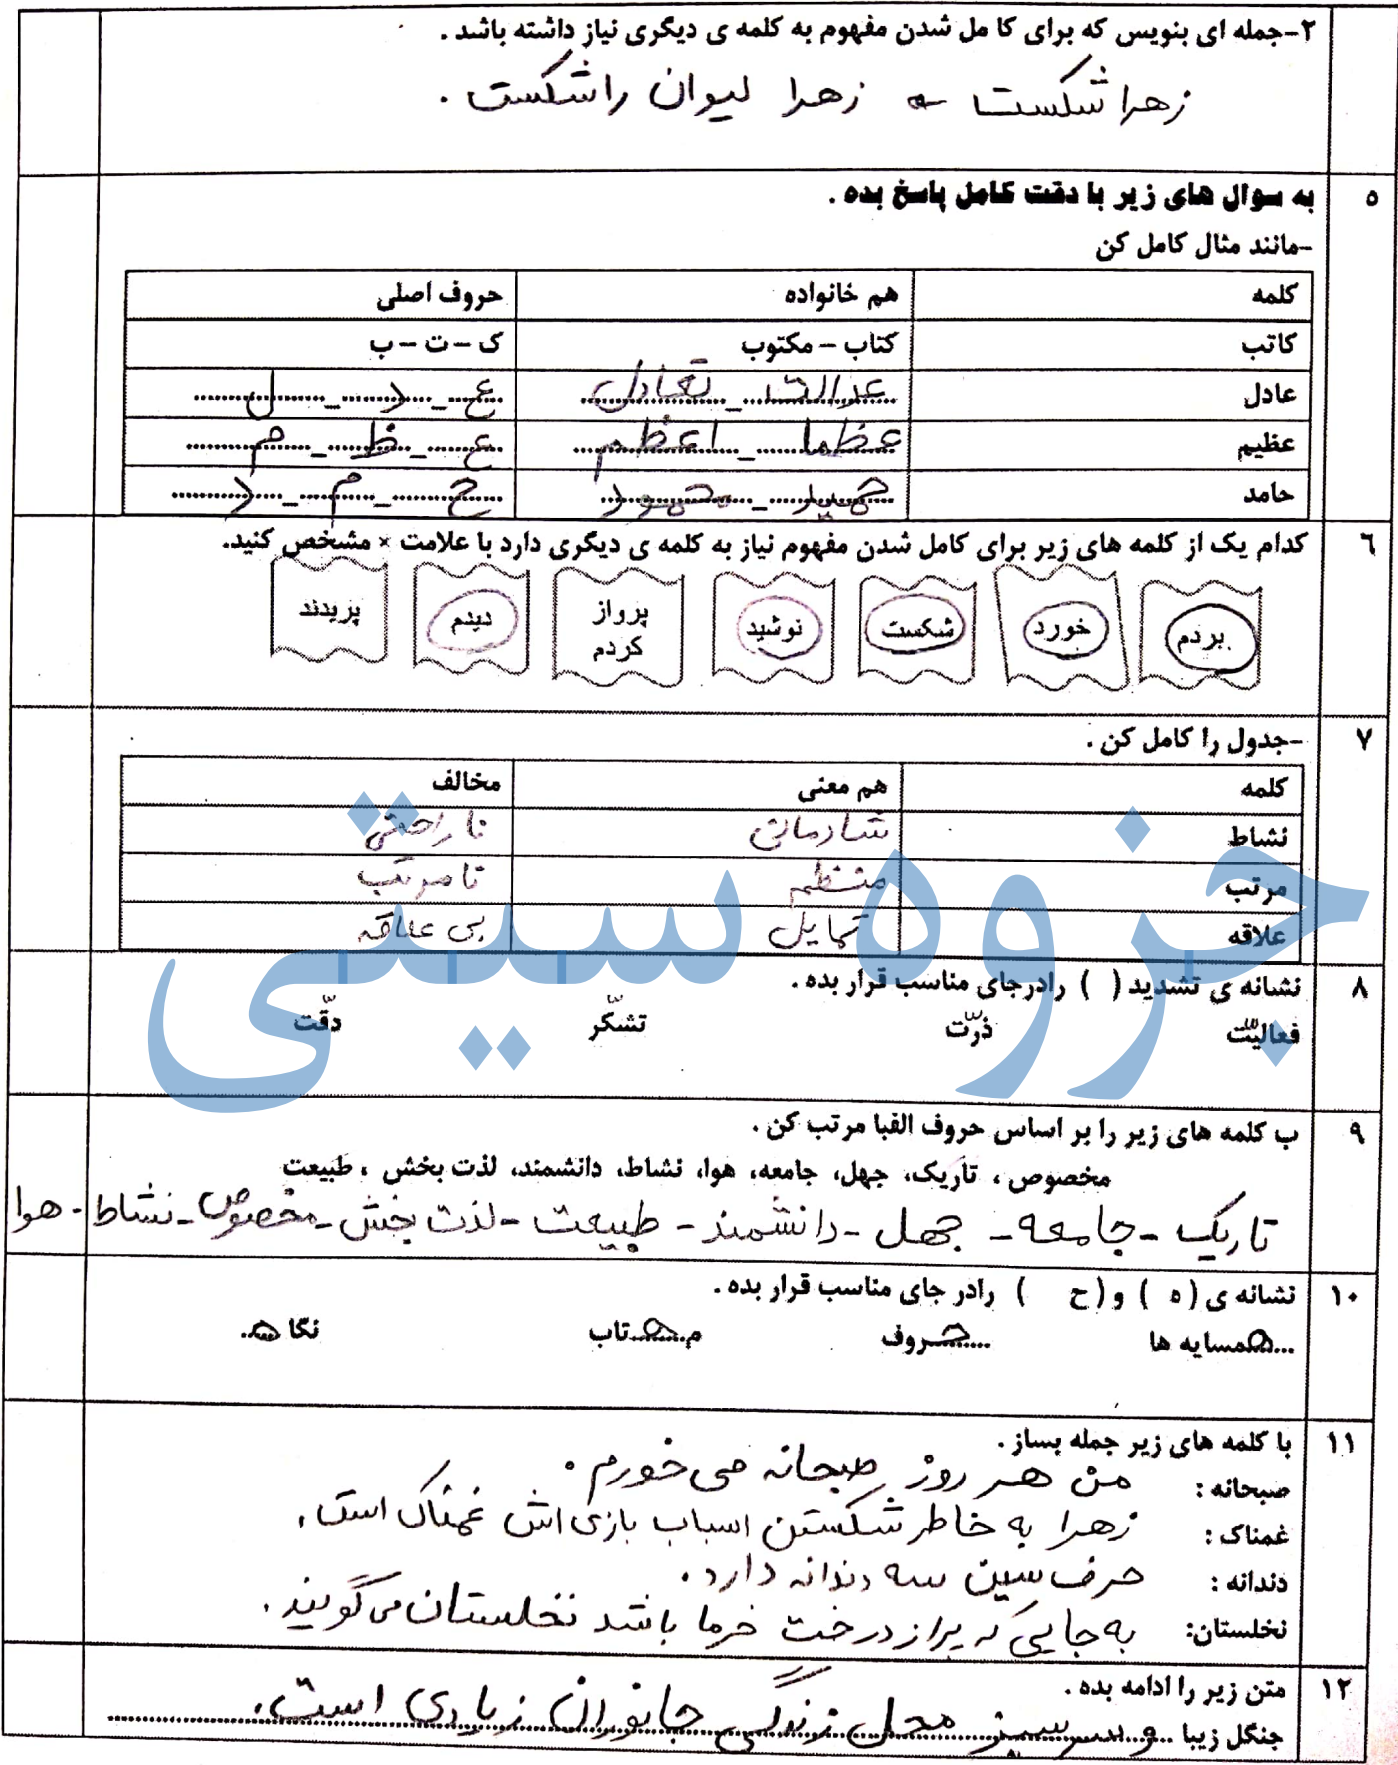 ۲-جمله ای بنویس که برای کا مل شدن مفهوم به کلمه ی دیگری نیاز داشته باشد .
زهرا شکست ← زهرا لیوان را شکست .
۵ به سوال های زیر با دقت کامل پاسخ بده .
-مانند مثال کامل کن
کلمه هم خانواده حروف اصلی
کاتب کتاب – مکتوب ک – ت – ب
عادل عدالت - تعادل ع - د - ل
عظیم عظما - اعظم ع - ظ - م
حامد حمید - محمود ح - م - د
۶ کدام یک از کلمه های زیر برای کامل شدن مفهوم نیاز به کلمه ی دیگری دارد با علامت × مشخص کنید.
بردم خورد شکست نوشید پرواز کردم دیدم پریدند
۷ -جدول را کامل کن .
کلمه هم معنی مخالف
نشاط شادمانی ناراحتی
مرتب منظم نامرتب
علاقه تمایل بی علاقه
جزوه سیتی
۸ نشانه ی تشدید ( ) رادرجای مناسب قرار بده .
فعالیّت ذرّت تشکّر دقّت
۹ ب کلمه های زیر را بر اساس حروف الفبا مرتب کن .
مخصوص ، تاریک، جهل، جامعه، هوا، نشاط، دانشمند، لذت بخش ، طبیعت
تاریک - جامعه - جهل - دانشمند - طبیعت - لذت بخش - مخصوص - نشاط - هوا
۱۰ نشانه ی ( ه ) و ( ح ) رادر جای مناسب قرار بده .
...همسایه ها ...حروف م...ه...تاب نگا ه..
۱۱ با کلمه های زیر جمله بساز .
صبحانه : من هر روز صبحانه می خورم .
غمناک : زهرا به خاطر شکستن اسباب بازی اش غمناک است .
دندانه : حرف سین سه دندانه دارد .
نخلستان: به جایی که پر از درخت خرما باشد نخلستان می گویند .
۱۲ متن زیر را ادامه بده .
جنگل زیبا و سرسبز محل زندگی جانوران زیادی است .